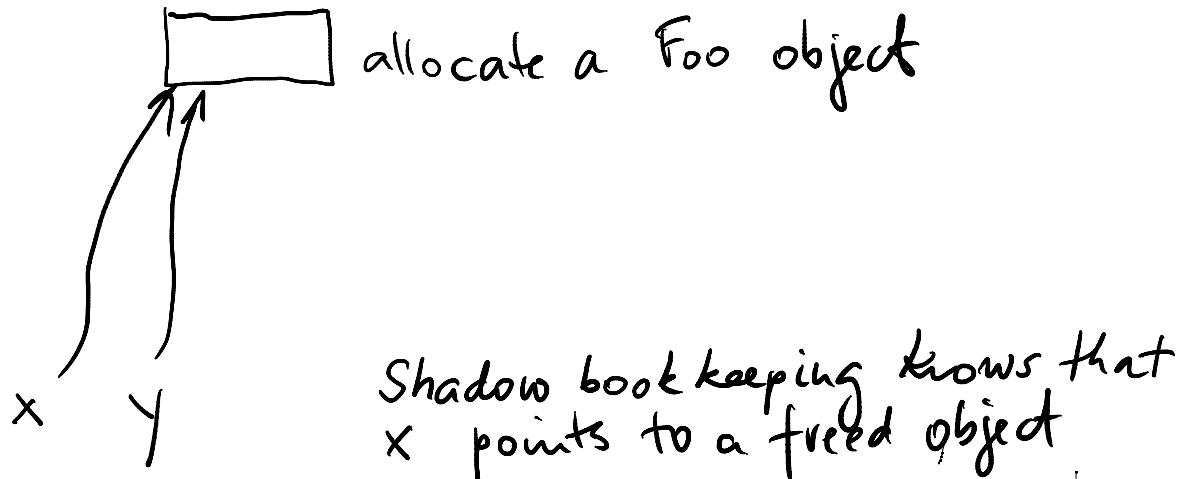 allocate a Foo object
x y
Shadow bookkeeping knows that
x points to a freed object